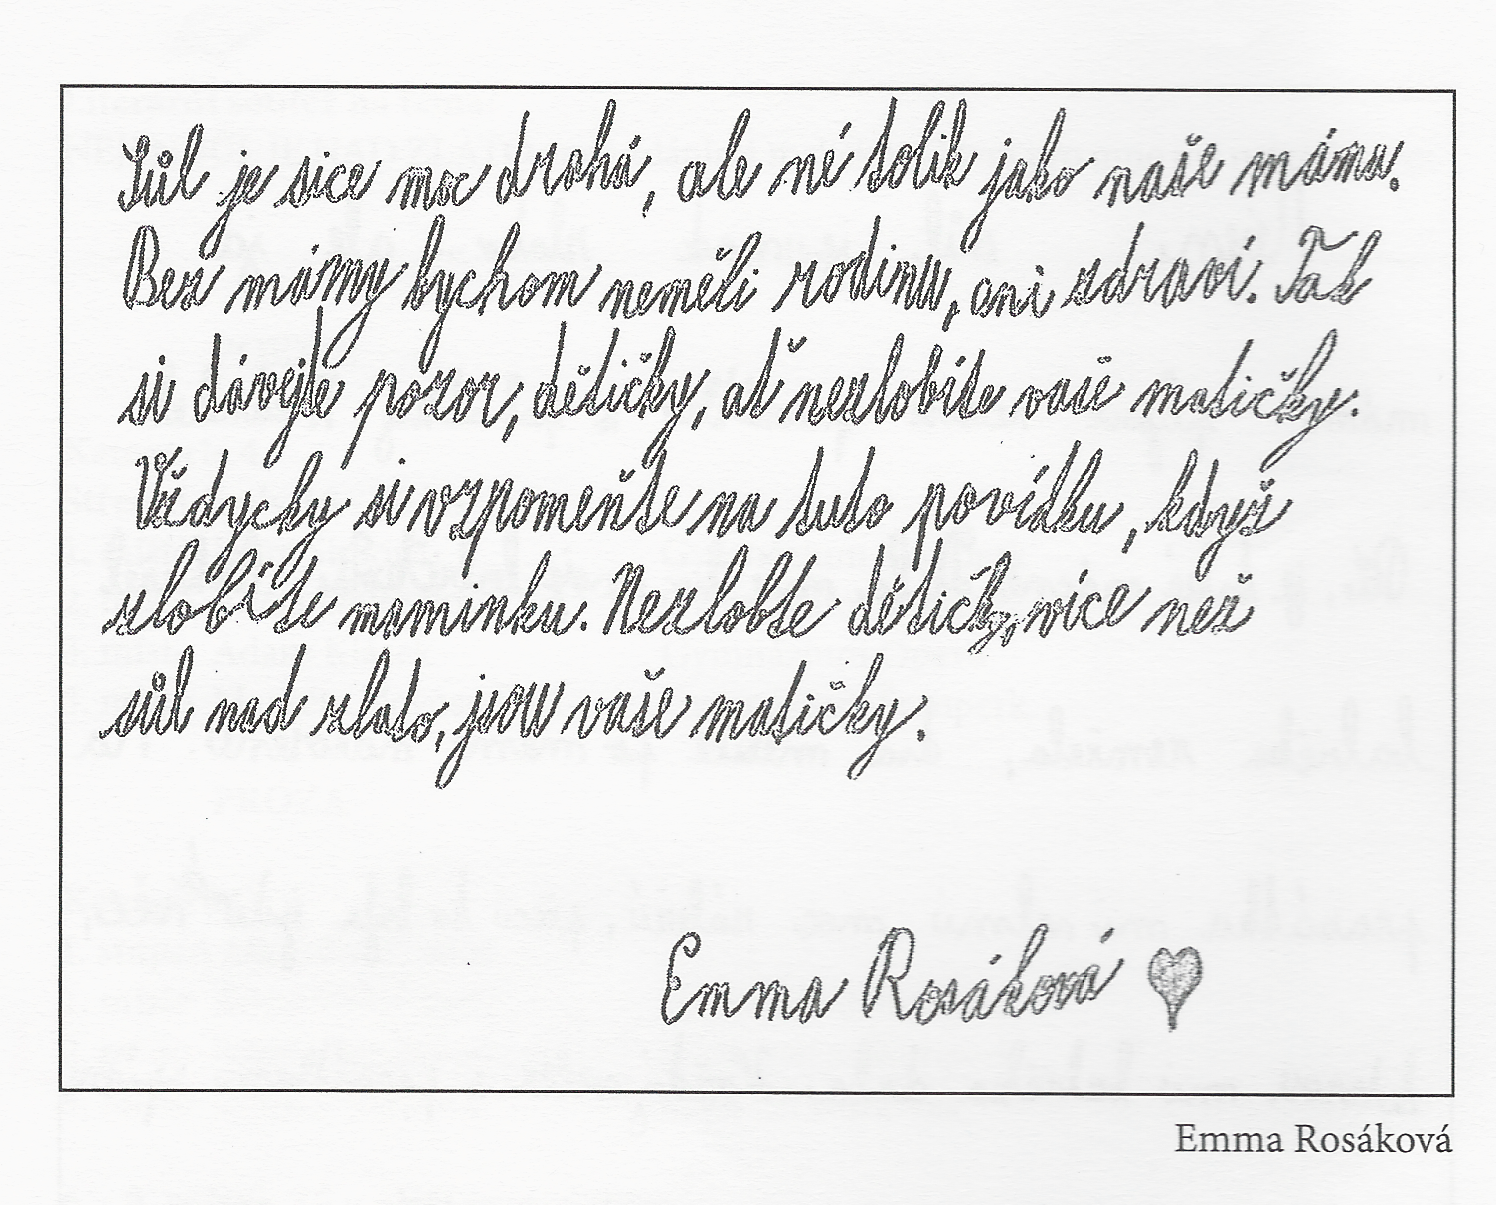 Sůl je sice moc drahá, ale né tolik jako naše máma.
Bez mámy bychom neměli rodinu, ani zdraví. Tak
si dávejte pozor, dětičky, ať nezlobíte vaše matičky.
Vždycky si vzpomeňte na tuto povídku, když
zlobíte maminku. Nezlobte dětičky, více než
sůl nad zlato, jsou vaše matičky.
Emma Rosáková
Emma Rosáková